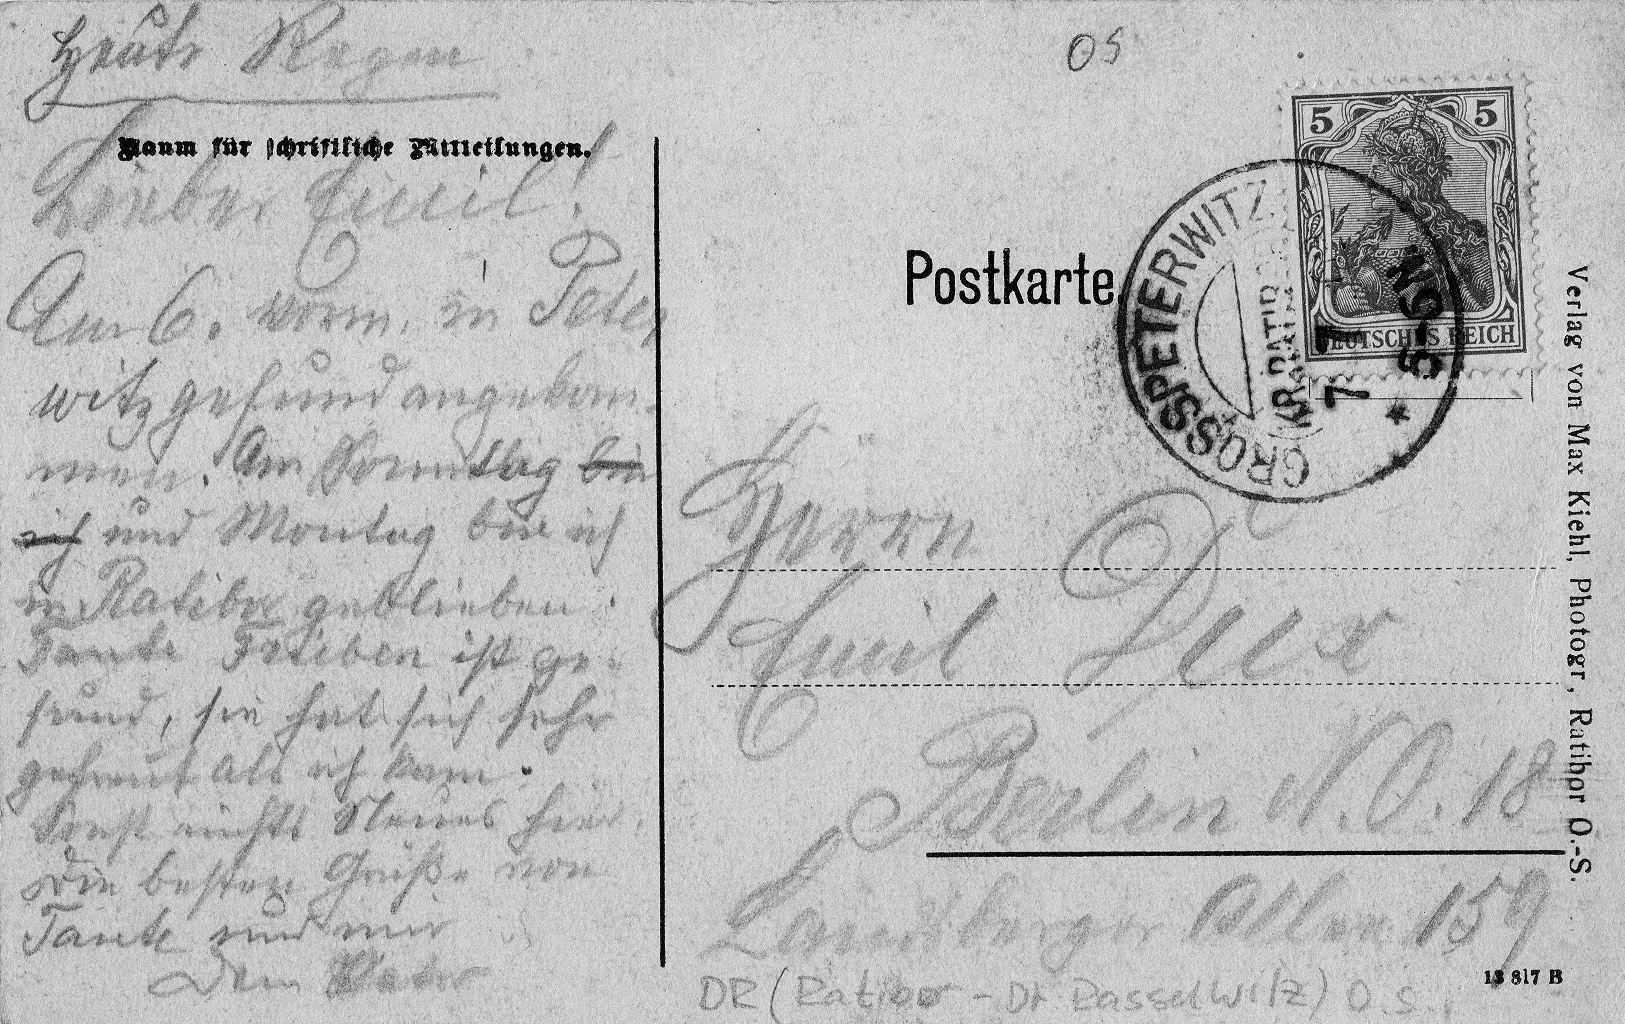 Heute Regen
Raum für schriftliche Mitteilungen.
Lieber Emil!
Am 6. vorm. in Peter
witz gesund angekom-
men. Am Sonntag bin
ich und Montag bin ich
in Ratibor geblieben.
Tante Frieben ist ge-
sund, sie hat sich sehr
gefreut als ich kam.
Sonst nichts Neues hier.
Die besten Grüße von
Tante und mir
Dein Vater
OS
5 5
DEUTSCHES REICH
GROSSPETERWITZ
(KR. RATIBOR)
7
5-6N
Postkarte.
Herrn
Emil Dux
Berlin N.O. 18
Landsberger Allee 159
DR (Ratibor - Dt. Rasselwitz) O.S.
Verlag von Max Kiehl, Photogr., Ratibor O.-S.
13 817 B